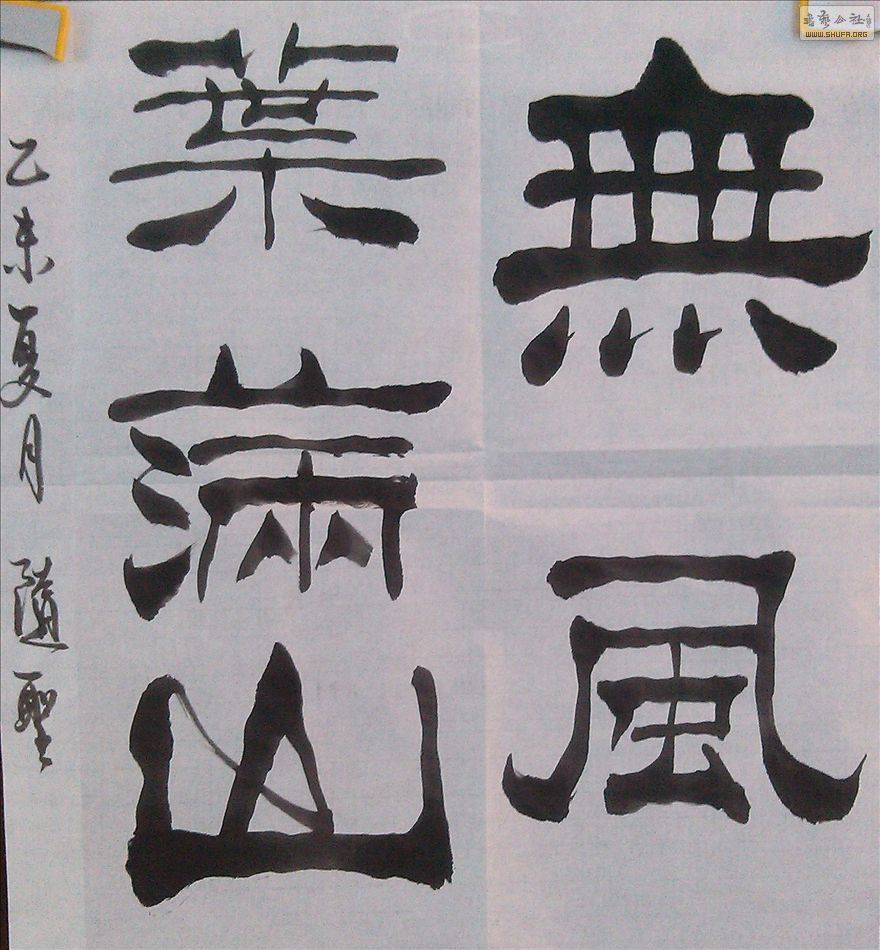 無風
葉滿山
乙未夏月 隨聖
书艺公社
WWW.SHUFA.ORG